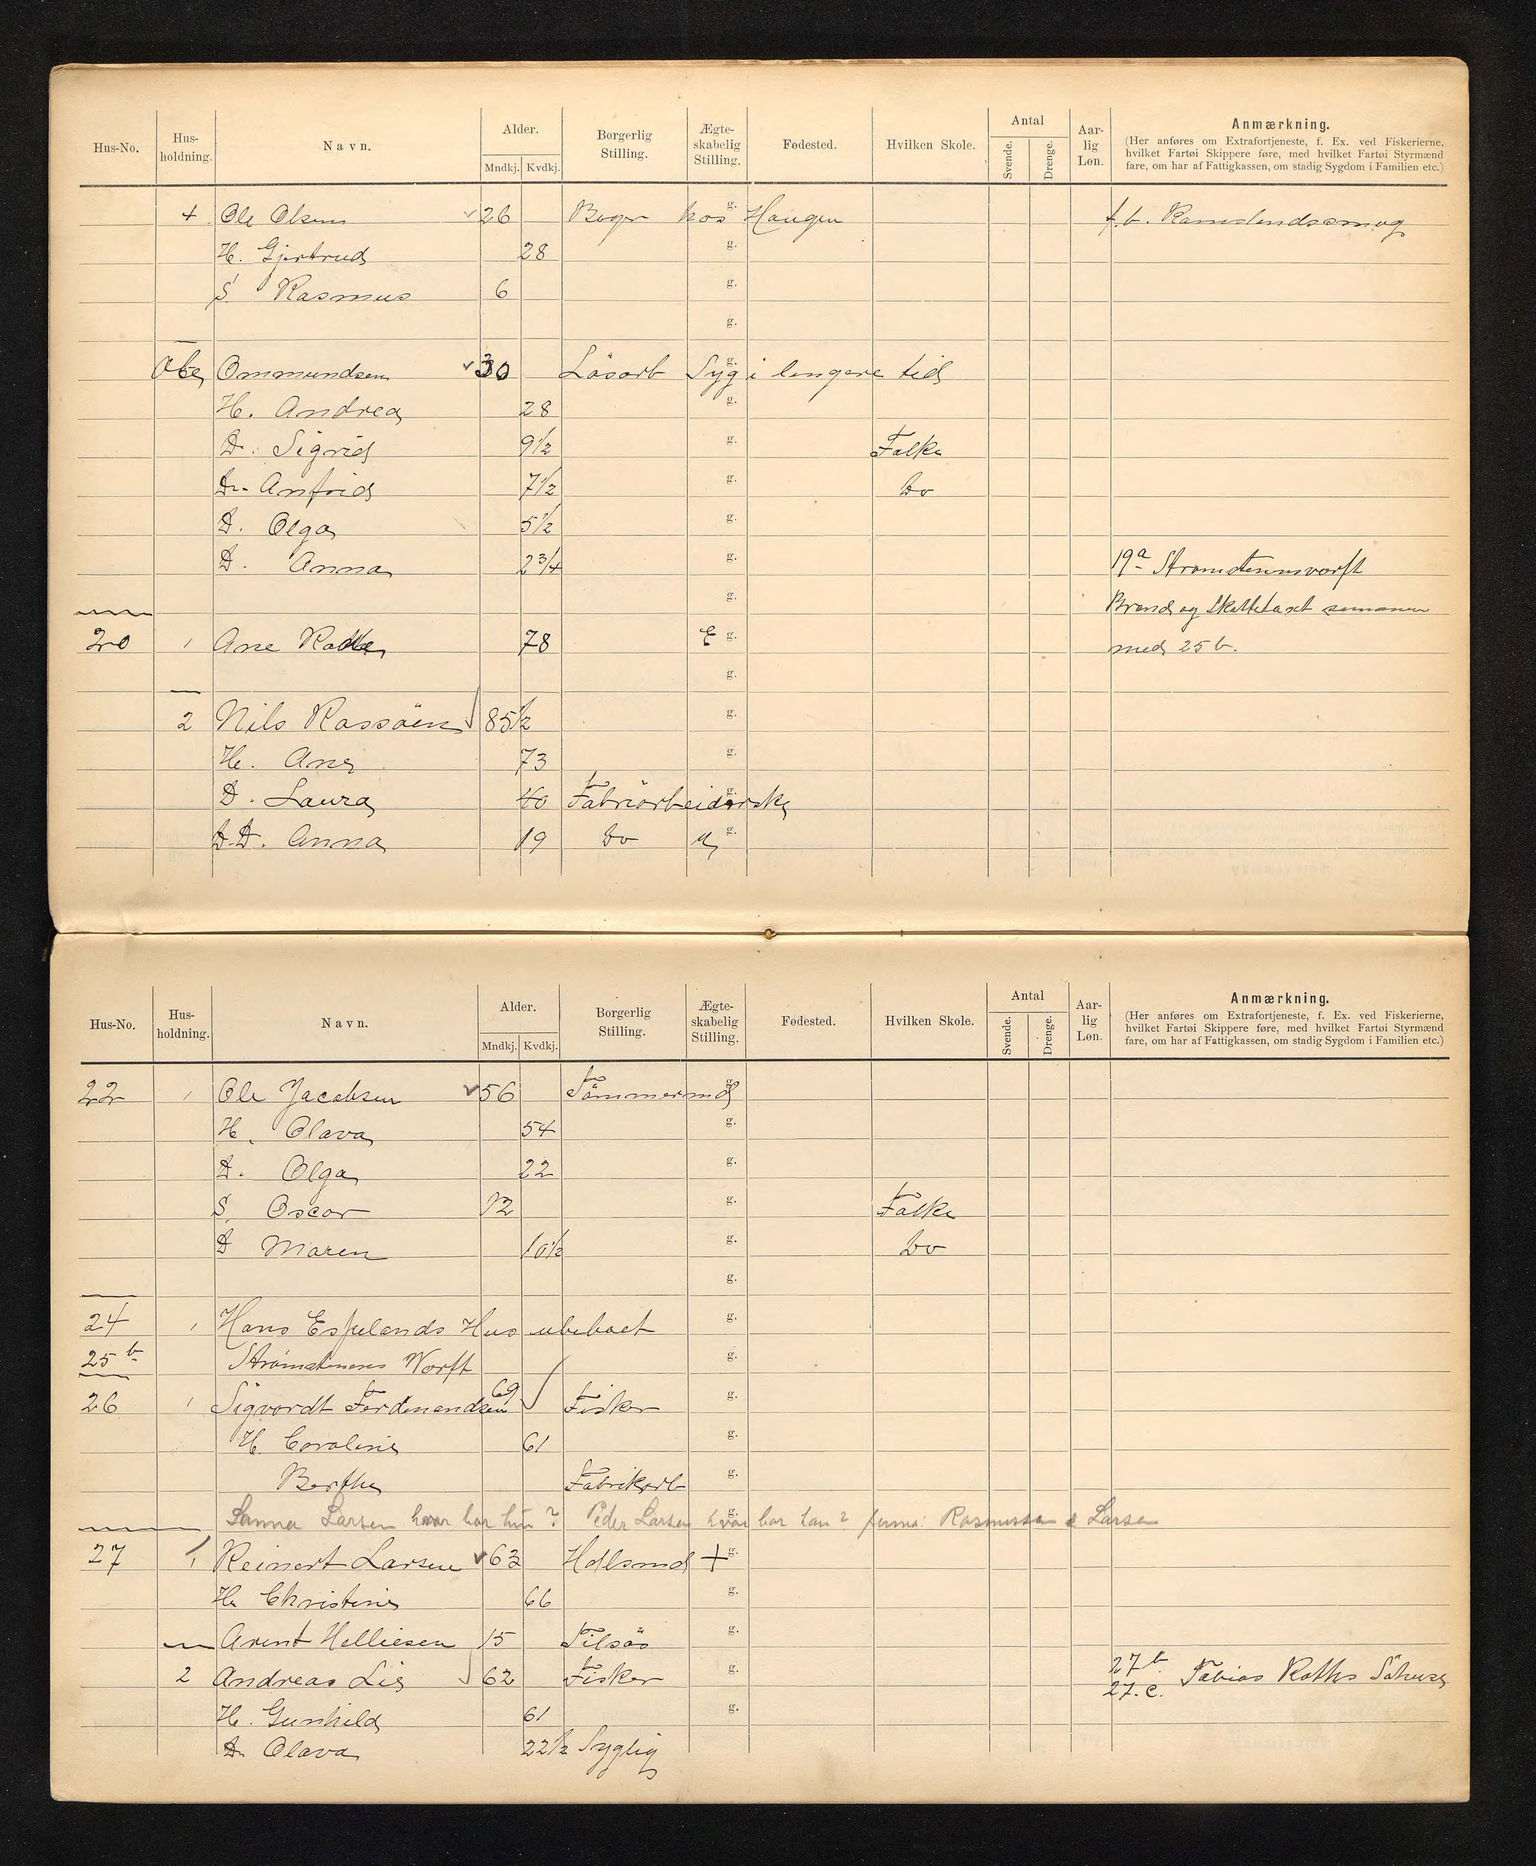 Hus-No. Hus-holdning. Navn. Alder. Mndkj. Kvdkj. Borgerlig Stilling. Ægte-skabelig Stilling. Fødested. Hvilken Skole. Antal Svende. Drenge. Aar-lig Løn. Anmærkning.
(Her anføres om Extrafortjeneste, f. Ex. ved Fiskerierne,
hvilket Fartøi Skippere føre, med hvilket Fartøi Styrmænd
fare, om har af Fattigkassen, om stadig Sygdom i Familien etc.)
4 Ole Olsen 26 Bager hos Haugen g.
H. Gjertrud 28 g.
S. Rasmus 6 g.
g.
Ole Ommundsen 30 Lösarb Syg i lengere tid g.
H. Andrea 28 g.
D. Sigrid 9 1/2 g. Folke
D. Anfrid 7 1/2 g. Do
D. Olga 5 1/2 g.
D. Anna 2 3/4 g. 19a Strømstensværft
g. Brand og Skattetaxt sammen
20 1 Ane 78 E g. med 25 b.
g.
2 Nils Rossöen 85 1/2 g.
H. Ane 73 g.
D. Laura 40 Fabriarbeiderske g.
D.D. Anna 19 Do g.
Hus-No. Hus-holdning. Navn. Alder. Mndkj. Kvdkj. Borgerlig Stilling. Ægte-skabelig Stilling. Fødested. Hvilken Skole. Antal Svende. Drenge. Aar-lig Løn. Anmærkning.
(Her anføres om Extrafortjeneste, f. Ex. ved Fiskerierne,
hvilket Fartøi Skippere føre, med hvilket Fartøi Styrmænd
fare, om har af Fattigkassen, om stadig Sygdom i Familien etc.)
22 1 Ole Jacobsen 56 Tömmermd g.
H. Olava 54 g.
D. Olga 22 g.
S. Oscar 12 g. Folke
D Maren 10 1/2 g. Do
g.
24 1 Hans Espelands Hus ubeboet g.
25 b Strømstenens Værft g.
26 1 Sigvardt Ferdinandsen 69 Fisker g.
H. Caroline 61 g.
Berthe Fabrikarb g.
Sanna Larsen hvor bor hun? Peder Larsen hvor bor han? firma: Rasmussen & Larsen g.
27 1 Reinert Larsen 63 Hdlsmd + g.
H. Christine 66 g.
Arent Helliesen 15 Tilsös g.
2 Andreas Lie 62 Fisker g. 27 b. 27. c. Tobias Roths Söhuse
H. Gunhild 61 g.
D. Olava 22 1/2 Syglig